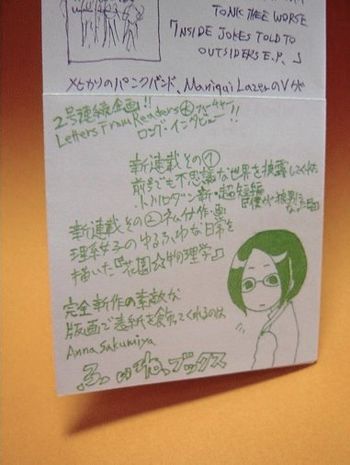 TONIC THEE WORSE
「INSIDE JOKES TOLD TO
OUTSIDERS E.P.」
メヒカリのパンクバンド、Maniqui LazerのVが
2号連続企画!!
Letters From Readers
ロング・インタビュー!!
新連載その①
前号でも不思議な世界を披露してくれた
新・超短編
新連載その② ネム付作・画
理系女子のゆるふゆな日常を
描いた『花園☆物理学』
完全新作の素敵な
版画で表紙を飾ってくれるのは
Anna Sakumiya
ブックス